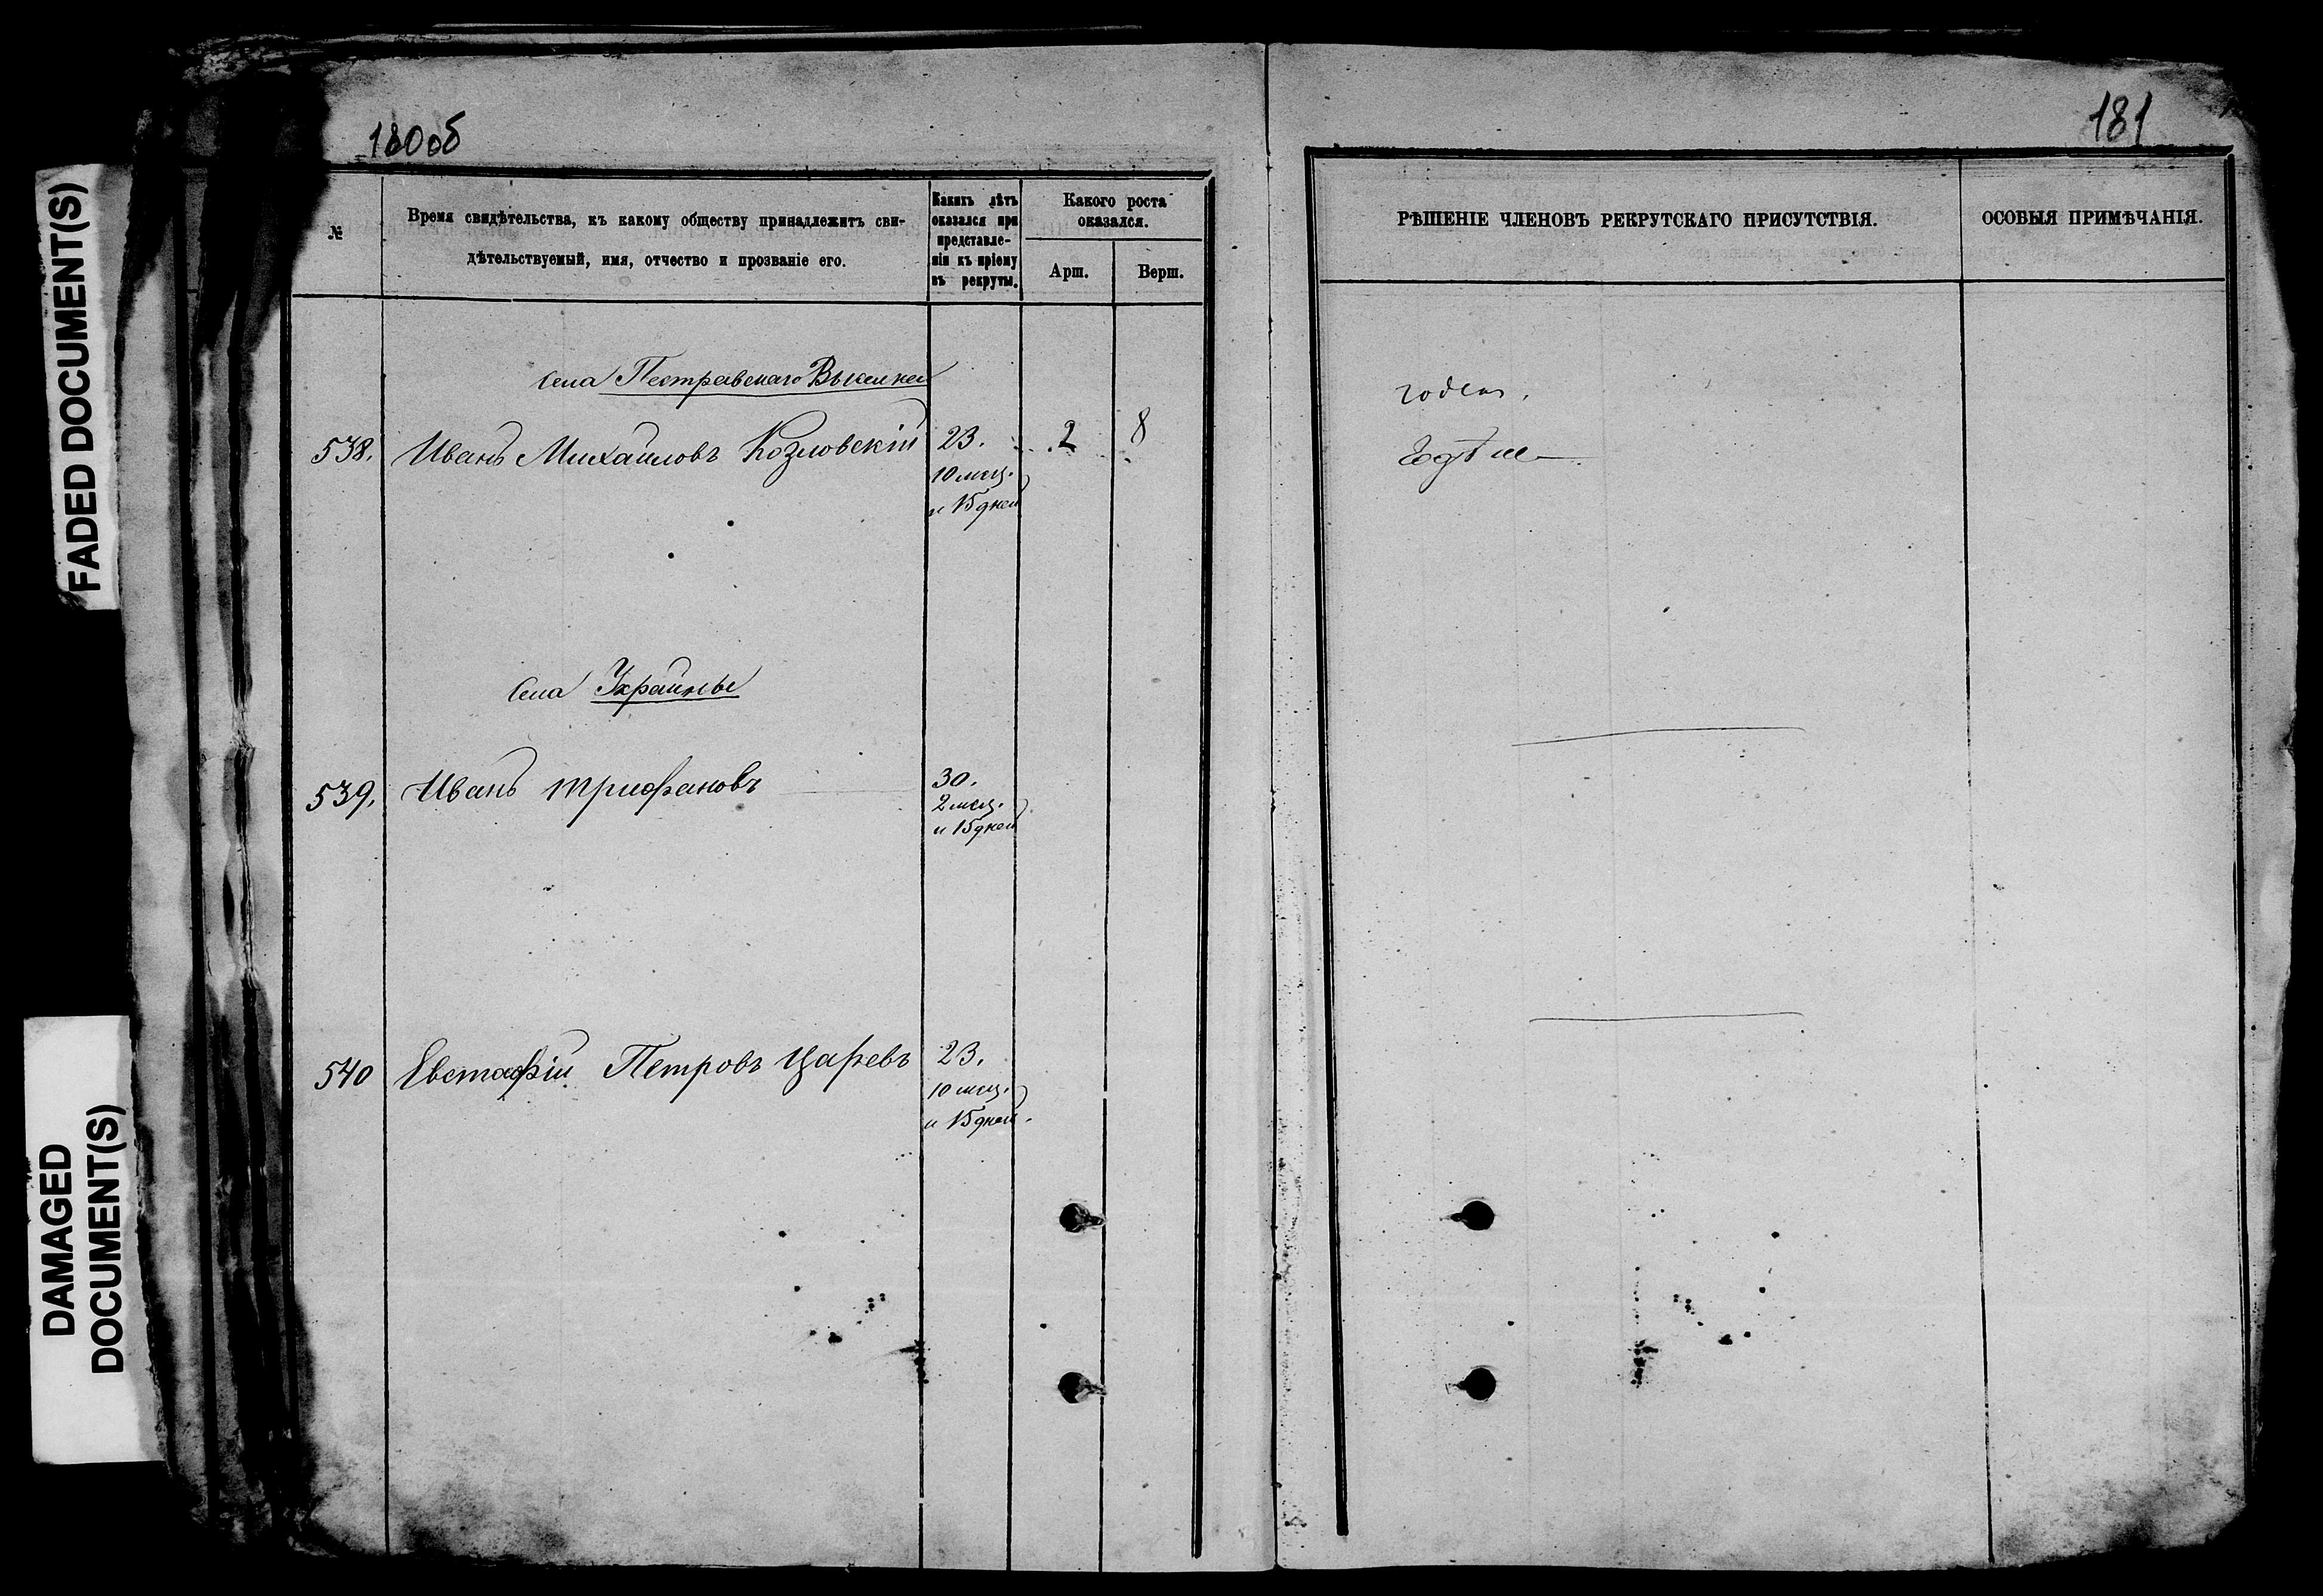 180 об
181
FADED DOCUMENT(S)
DAMAGED
DOCUMENT(S)
№
Время свидѣтельства, къ какому обществу принадлежитъ сви-
дѣтельствуемый, имя, отчество и прозваніе его.
Какихъ лѣтъ
оказался при
представле-
ніи къ пріему
въ рекруты.
Какого роста
оказался.
Арш.
Верш.
РѢШЕНІЕ ЧЛЕНОВЪ РЕКРУТСКАГО ПРИСУТСТВІЯ.
ОСОБЫЯ ПРИМѢЧАНІЯ.
Села Пестравскаго Выселка
годенъ.
538. Иванъ Михайловъ Козловскій 23. 2 8
10 мец.
и 15 дней
Села Украинки
539. Иванъ Трифановъ 30.
2 мец.
и 15 дней
540 Евстафій Петровъ Царевъ 23.
10 мец.
и 15 дней.